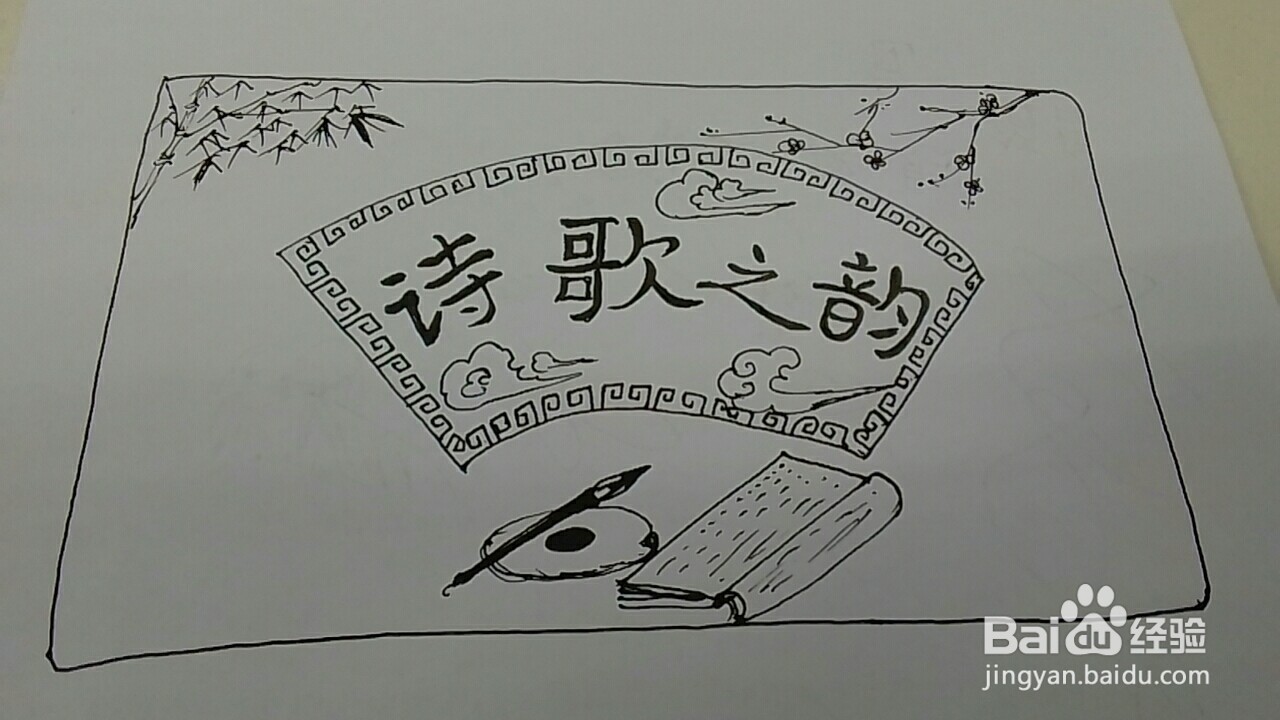 诗歌之韵
Baidu经验
jingyan.baidu.com